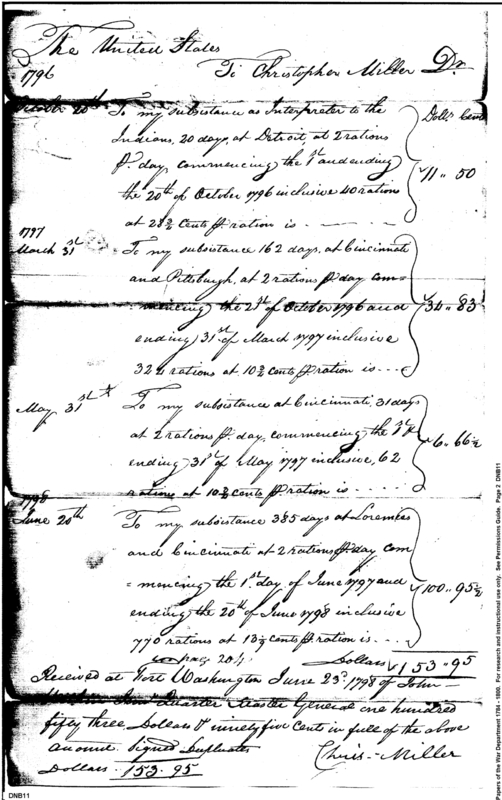 The United States
1796 To Christopher Miller Dr
October 20th To my subsistance as Interpreter to the Dolls Cents
Indians, 20 days, at Detroit, at 2 rations
pr. day, commencing the 1st and ending
the 20th of October 1796 inclusive 40 ration 11 " 50
at 28¾ Cents pr. ration is - - - -
1797
March 31st To my subsistance 162 days, at Cincinnati
and Pittsburgh, at 2 rations pr day com=
= mencing the 21st of October 1796 and 34 " 83
ending 31st of March 1797 inclusive
324 rations at 10¾ Cents pr ration is - - -
May 31st To my subsistance at Cincinnati, 31 days
at 2 rations pr. day, commencing the 1st &
ending 31st of May 1797 inclusive, 62 6 " 66½
rations at 10¾ cents pr ration is - - - -
1798
June 20th To my subsistance 385 days at Loremies
and Cincinnati at 2 rations pr day com
= mencing the 1st day of June 1797 and
ending the 20th of June 1798 inclusive 100 " 95½
770 rations at cents pr ration is - - -
page 204 Dollars 153 " 95
Received at Fort Washington June 23d, 1798 of John
Quarter Master General one hundred
fifty three Dollars & ninety five Cents in full of the above
amount. Signed Duplicates
Dollars. 153. 95 Chris- Miller
DNB11
Papers of the War Department 1784 - 1800. For research and instructional use only. See Permissions Guide. Page 2 DNB11